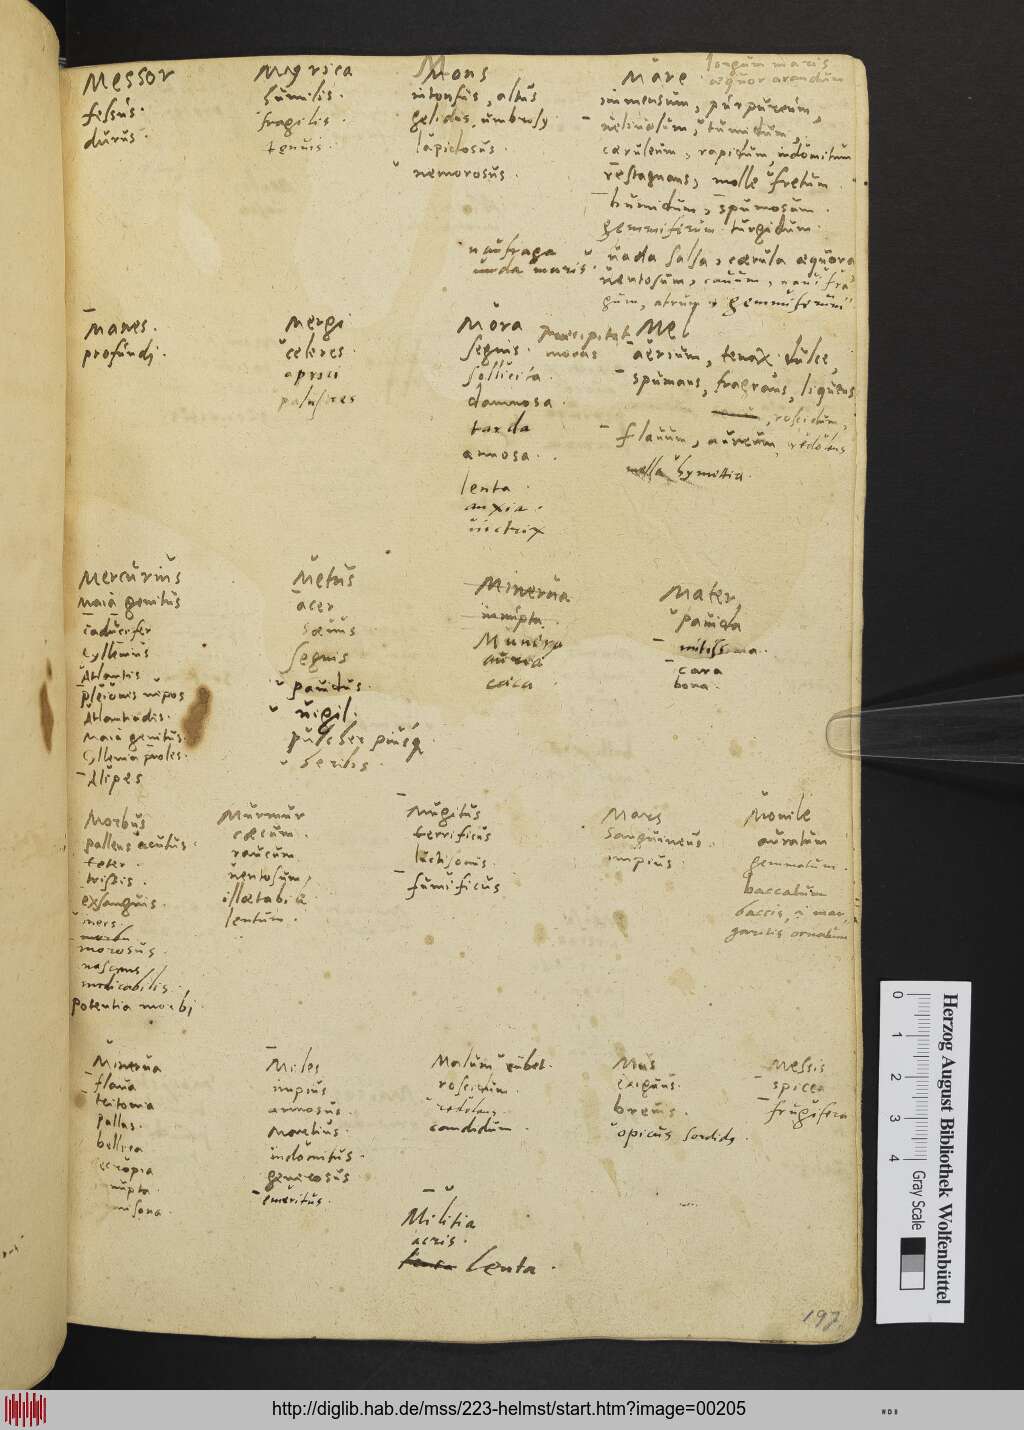 Messor
fessus.
durus.
Myrica
humilis.
fragilis.
tenuis.
Mons
intonsus, altus
gelidus, umbrosus
lapidosus.
nemorosus.
Mare
longum maris
aequor arandum
immensum, purpureum,
uelinolum, tumidum,
caeruleum, rapidum, indomitum
restagnans, molle fretum.
humidum, spumosum.
gemmiferum. turgidum.
uada salsa, caerula aequora
uentosum, cauum, naufra
gum, atrum, gemmiferum
naufraga
unda maris.
Manes.
profundi.
Mergi
celeres.
aprici
palustres
Mora
segnis.
sollicita.
damnosa.
tarda
annosa.
lenta.
anxia.
uictrix
praecipitat
moras
Mel
aerium, tenax. dulce,
spumans, fragrans, liquens
roscidum,
flauum, aureum, redolens
mella hymettia.
Mercurius
Maia genitus
caducifer
cyllenius
Atlantis
pleionis nepos
Atlantiadis.
Maia genitus.
Cyllenia proles.
Alipes
Metus
acer
saeuus
segnis
pauidus.
uigil.
pulcher
Minerua
innupta.
Munera
aurea
caeca.
Mater
pauida
mitissima.
cara
bona.
Morbus
pallens acutus.
teter.
tristis.
exsanguis.
iners.
morosus.
nascens
medicabilis.
potentia morbi
Murmur
caecum.
raucum
uentosum,
illaetabile
lentum.
Mugitus
terrificus
luctisonus.
fumificus
Mars
sanguineus.
impius.
Monile
auratum
gemmatum.
baccatum
baccis, i mar,
garitis ornatum
Minerua
flaua
tritonia
pallas.
bellica
cecropia
nupta.
Miles
impius
annosus.
Mauortius.
indomitus.
generosus
emeritus.
Malum rubet.
roscidum.
redolens.
candidum.
Mus
exiguus.
breuis.
opicus sordidus.
Messis
spicea
frugifera
Militia
acris.
lenta.
197.
Herzog August Bibliothek Wolfenbüttel
0 1 2 3 4 Gray Scale
http://diglib.hab.de/mss/223-helmst/start.htm?image=00205